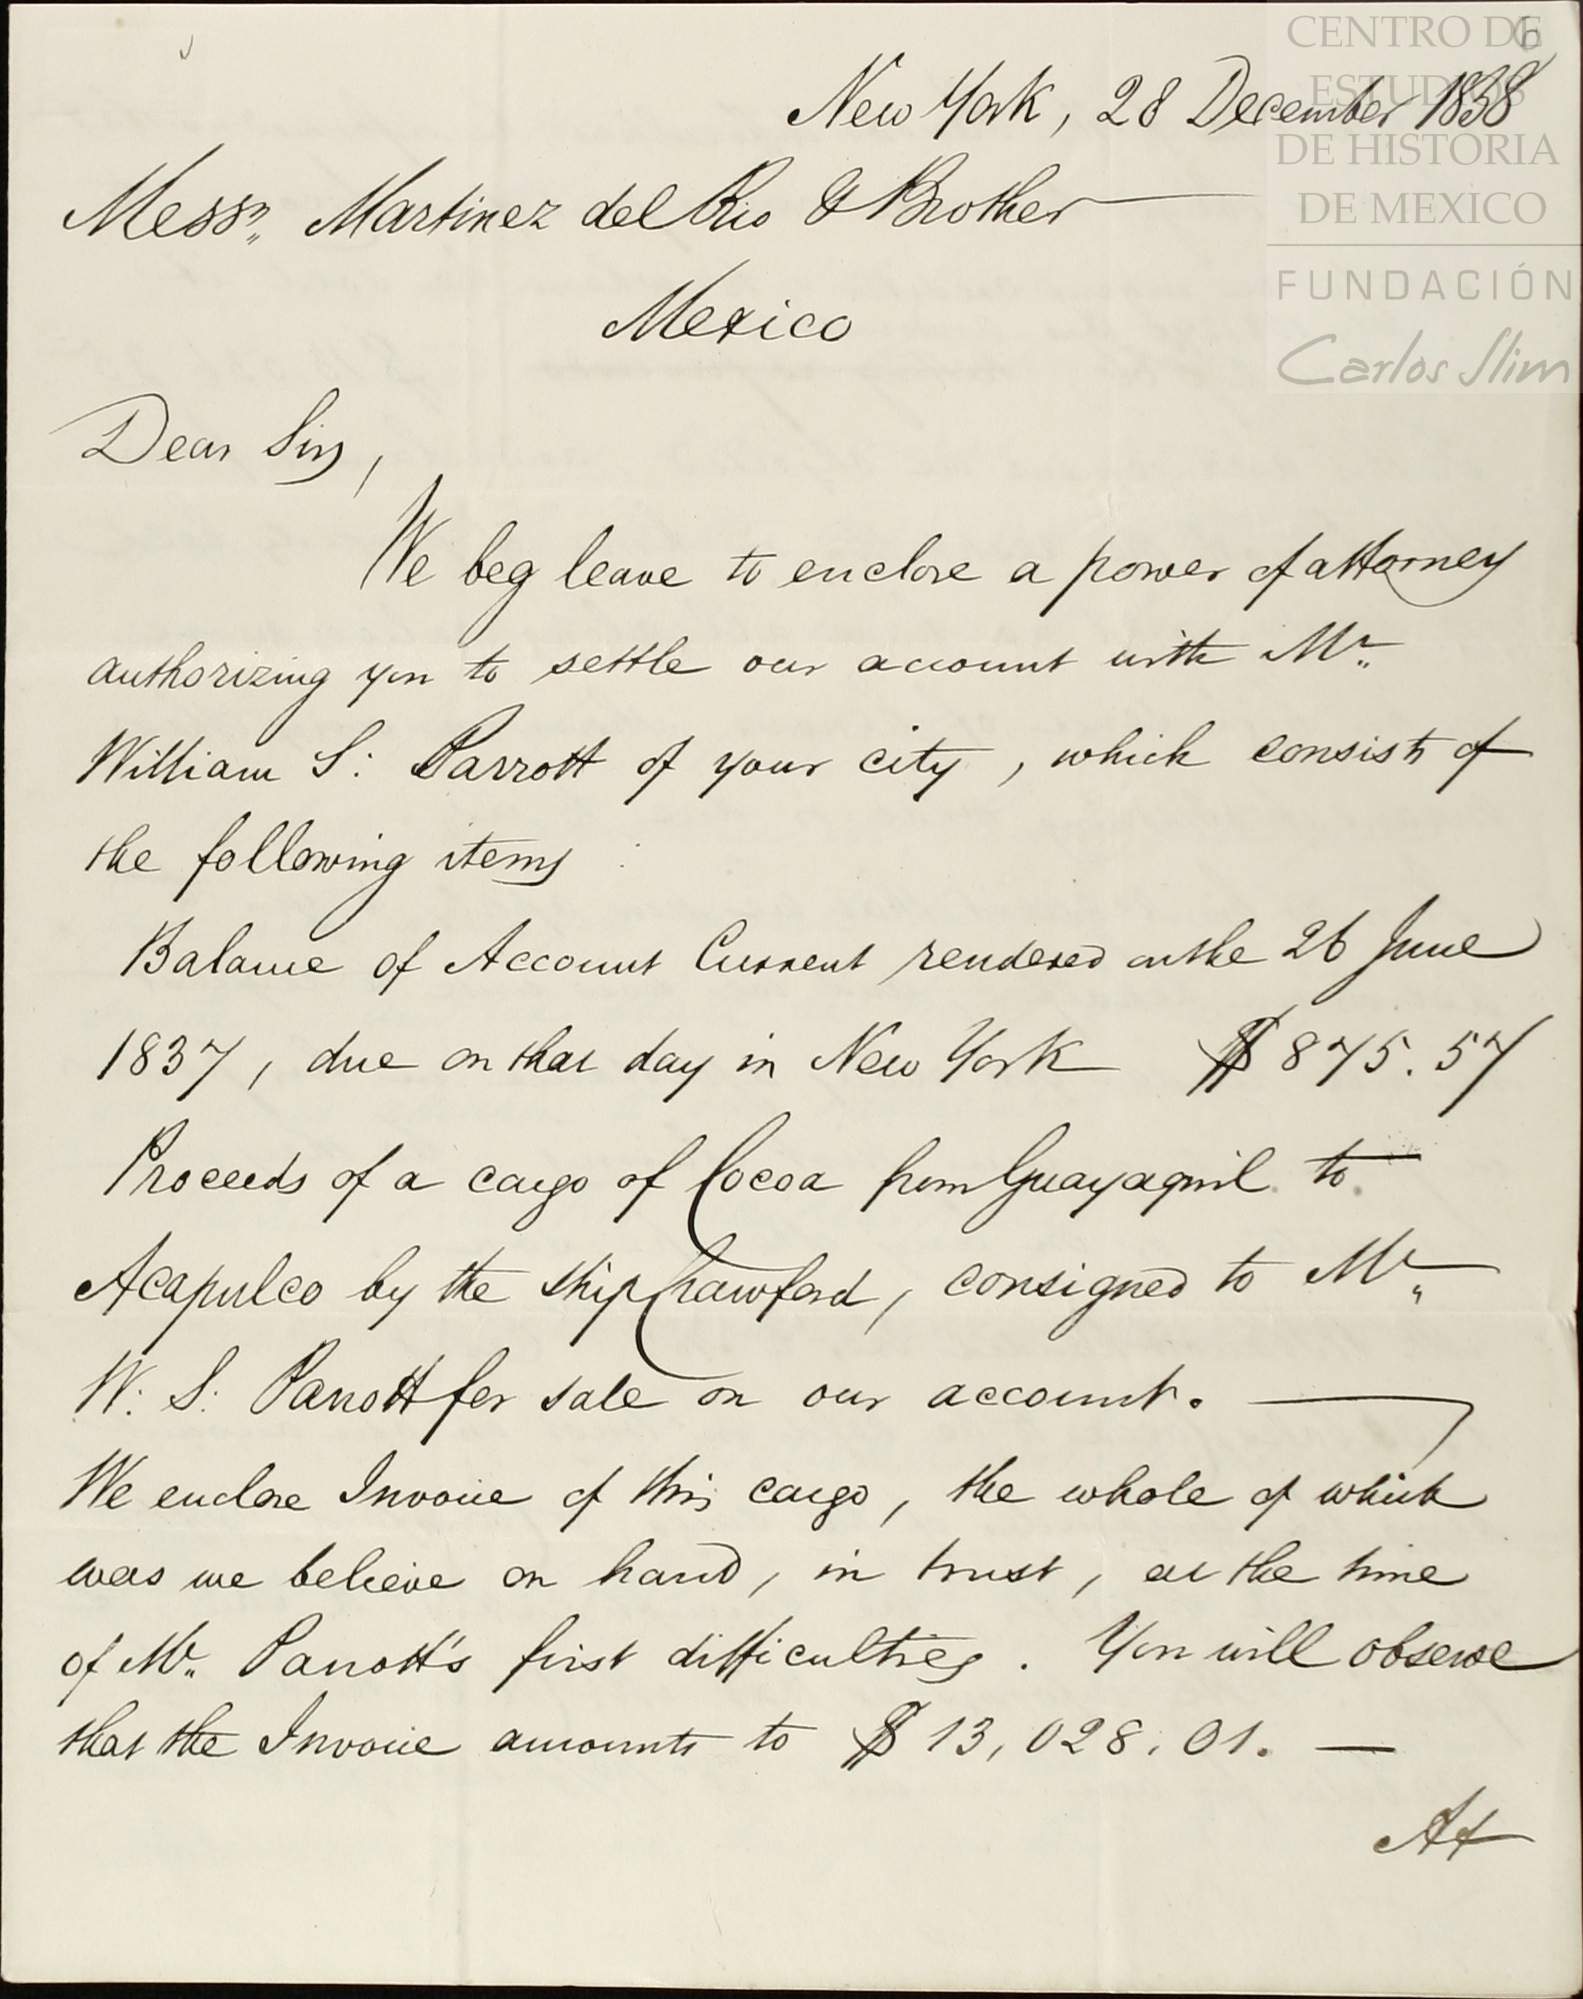 6
CENTRO DE
ESTUDIOS
DE HISTORIA
DE MEXICO
FUNDACIÓN
Carlos Slim
New York, 28 December 1838
Messrs. Martinez del Rio & Brother
Mexico
Dear Sirs,
We beg leave to enclose a power of attorney
authorizing you to settle our account with Mr.
William S: Parrott of your city, which consists of
the following items :
Balance of Account Current rendered on the 26 June
1837, due on that day in New York $ 875.57
Proceeds of a cargo of Cocoa from Guayaquil to
Acapulco by the ship Crawford, consigned to Mr.
W: S: Parrott for sale on our account. —
We enclose Invoice of this cargo, the whole of which
was we believe on hand, in trust, at the time
of Mr. Parrott's first difficulties. You will observe
that the Invoice amounts to $ 13,028.01. —
At